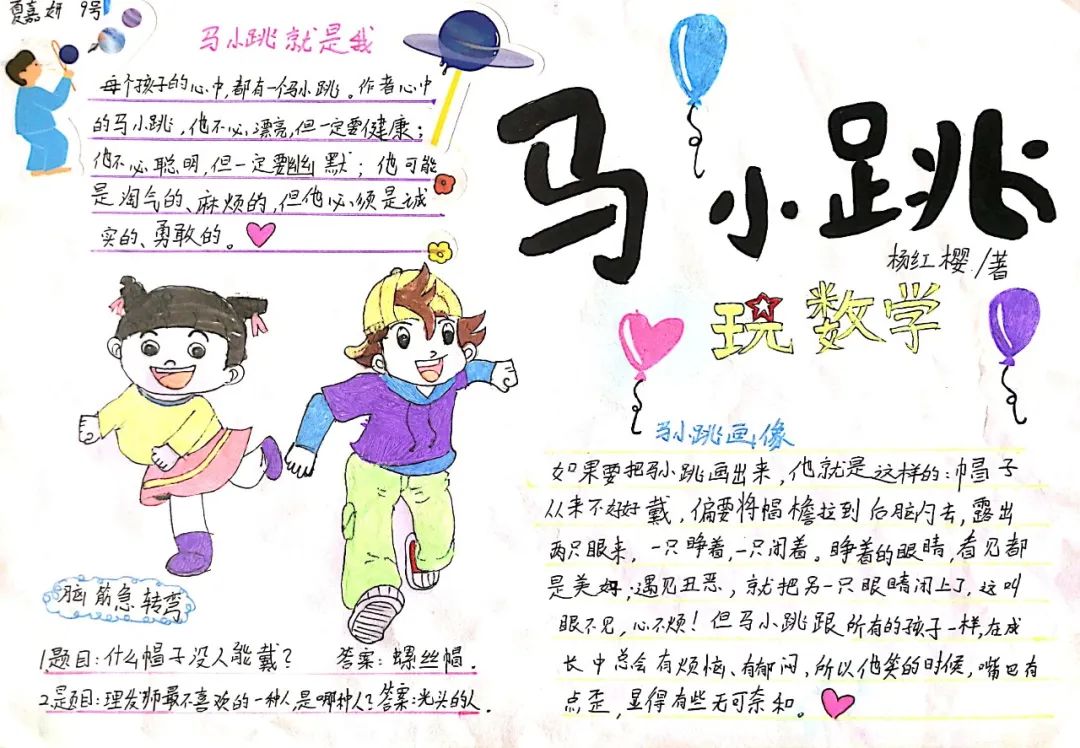 夏嘉妍 9号
马小跳就是我
每个孩子的心中,都有一个马小跳。作者心中
的马小跳,他不必漂亮,但一定要健康;
他不必聪明,但一定要幽默;他可能
是淘气的、麻烦的,但他必须是诚
实的、勇敢的。
马小跳
杨红樱/著
玩数学
脑筋急转弯
1.题目:什么帽子没人能戴? 答案:螺丝帽.
2.题目:理发师最不喜欢的一种人,是哪种人?答案:光头的人.
马小跳画像
如果要把马小跳画出来,他就是这样的:帽子
从来不好好戴,偏要将帽檐拉到后脑门去,露出
两只眼来,一只睁着,一只闭着。睁着的眼睛,看见都
是美好;遇见丑恶,就把另一只眼睛闭上了,这叫
眼不见,心不烦!但马小跳跟所有的孩子一样,在成
长中总会有烦恼、有郁闷,所以他笑的时候,嘴巴有
点歪,显得有些无可奈和。